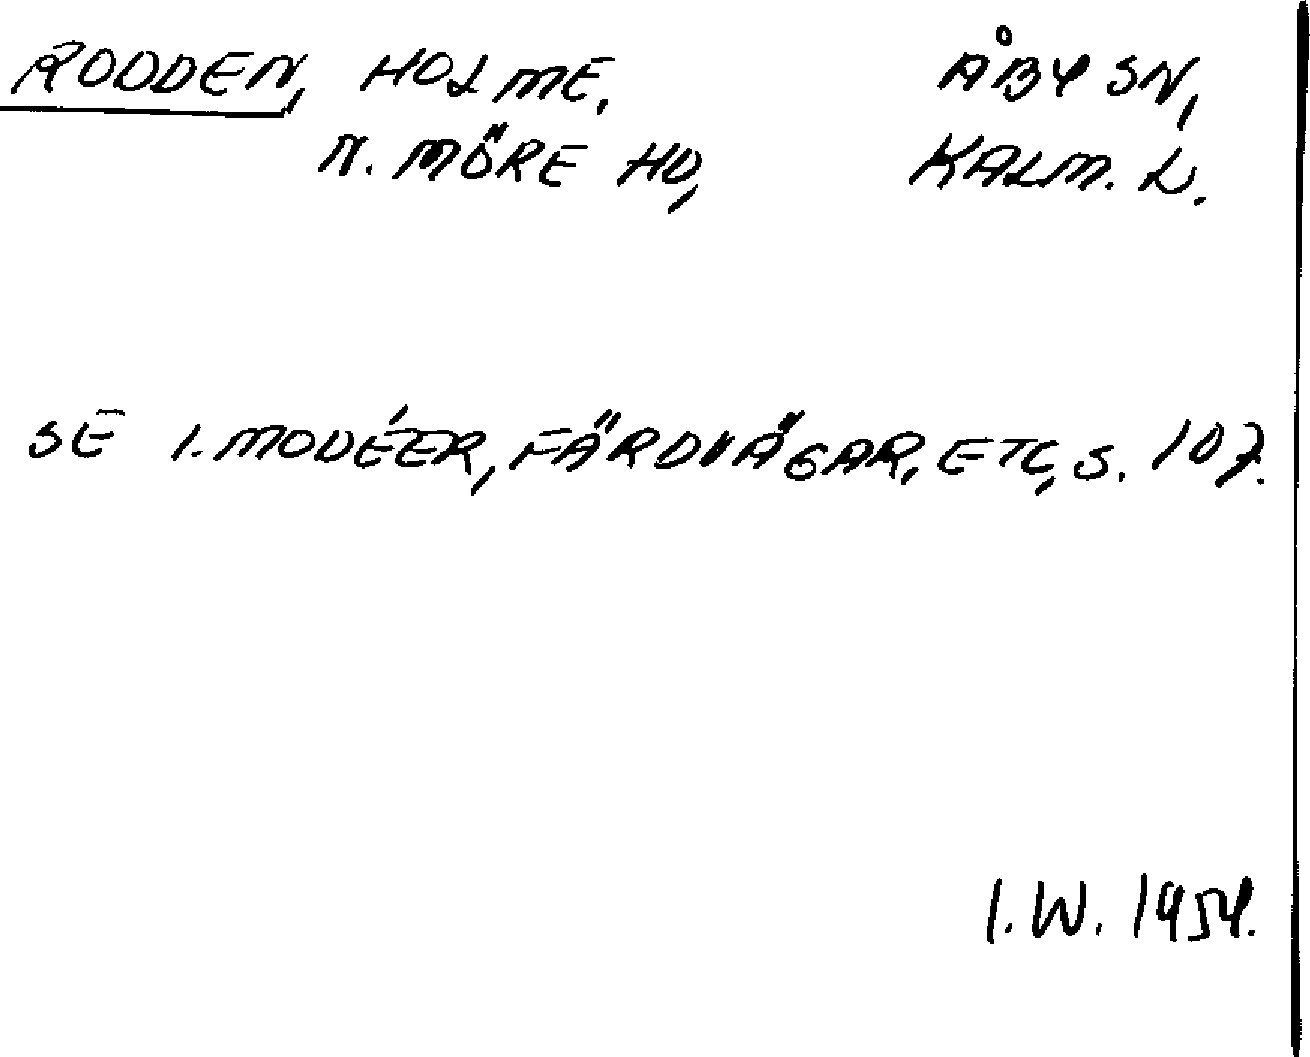 RODDEN, HOLME. ÅBY SN,
N. MÖRE HD, KALM. L.
SE I. MODÉER, FÄRDVÄGAR, ETC, S. 107.
I. W. 1954.